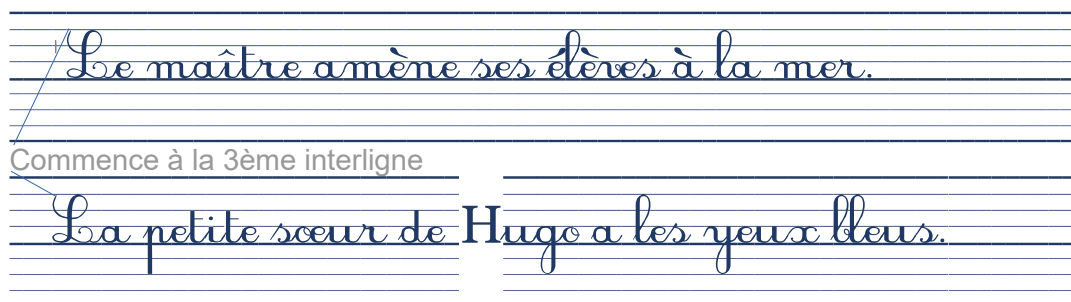 Le maître amène ses élèves à la mer.
Commence à la 3ème interligne
La petite sœur de Hugo a les yeux bleus.